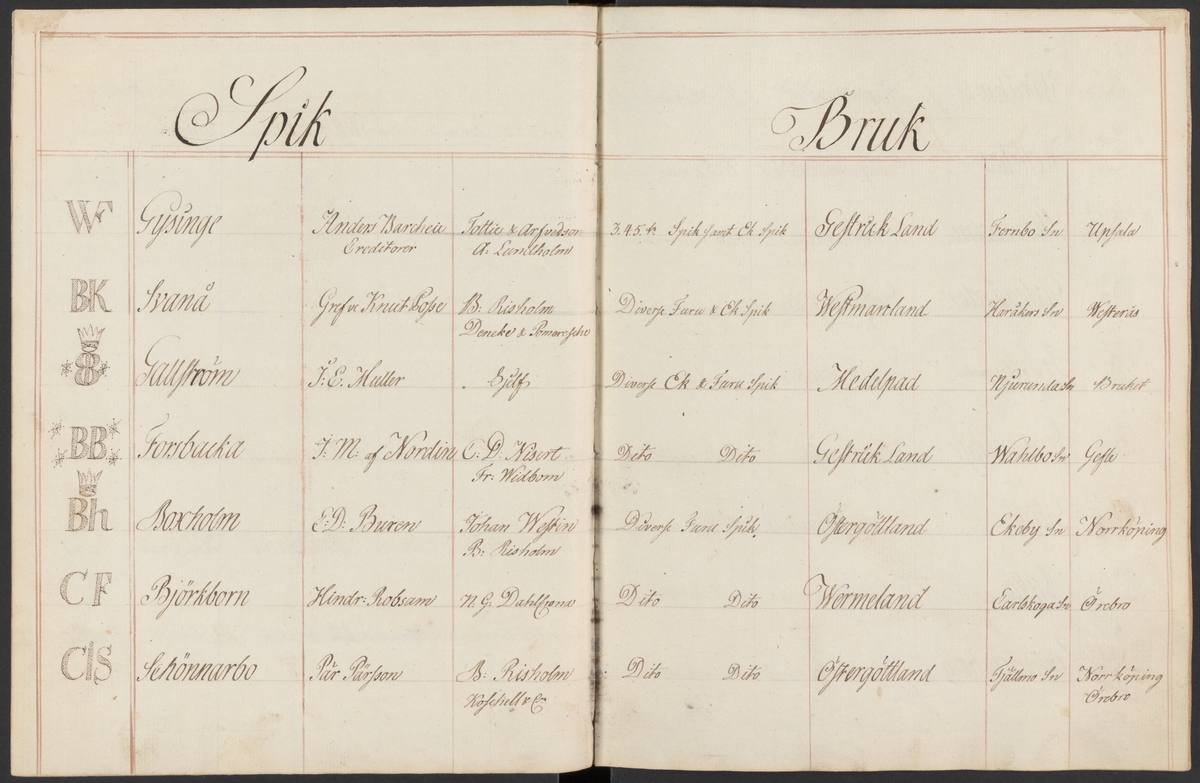 Spik Bruk
WF Gysinge Anders Barchei Tottie & Arfvidson 3.4.5. tr Spik samt Ek Spik Gestrik Land Fernbo Sn Upsala
Creditorer A: Lundholm
BK Svanå Grefve Knut Posse B: Risholm Diverse Furu & Ek Spik Westmanland Haråkers Sn Westerås
Deneke &
8 Gallström J: E. Muller Sjelf Diverse Ek & Furu Spik Medelpad Njurunda Sn Bruket
BB Forsbacka J: M: af Nordin C: D. Nisert Dito Dito Gestrik Land Wahlbo Sn Gefle
Fr: Widbom
Bh Boxholm E: D: Buren Johan Westin Diverse Furu Spik Östergöttland Ekeby Sn Norrköping
B: Risholm
CF Björkborn Hindr: Robsam N. G. Dahlcrona Dito Dito Wermeland Carlskoga Sn Örebro
CIS Schönnarbo Pär Pärsson B: Risholm Dito Dito Östergöttland Tjällmo Sn Norrköping
Koschell & C Örebro